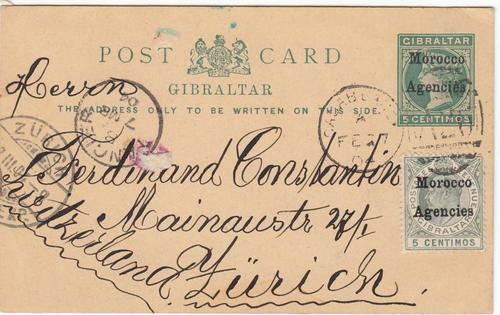 POST CARD
GIBRALTAR
THE ADDRESS ONLY TO BE WRITTEN ON THIS SIDE.
GIBRALTAR
Morocco
Agencies
5 CENTIMOS
Herrn
Ferdinand Constantin
Mainaustr. 27/I
Zürich.
Switzerland
ZÜRICH
FE 27
Morocco
Agencies
GIBRALTAR
5 CENTIMOS